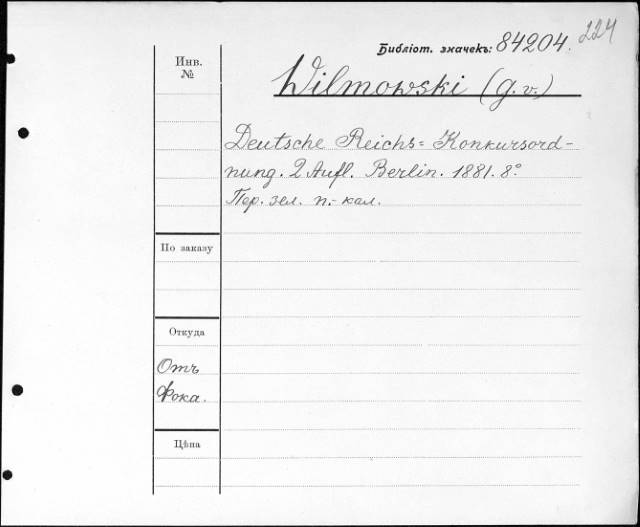 224
Библіот. значекъ: 84204.
Инв.
№
Wilmowski (G. v.)
Deutsche Reichs= Konkursord-
nung. 2 Aufl. Berlin. 1881. 8°
Пер. зел. п.-кал.
По заказу
Откуда
Отъ
Фока.
Цѣна